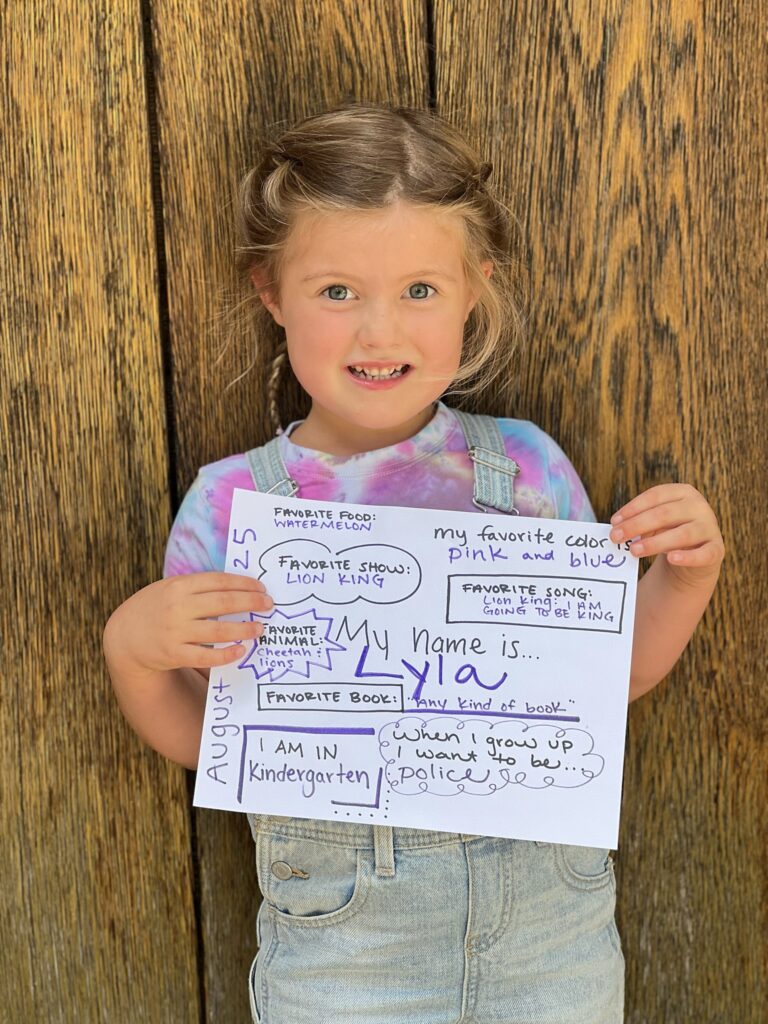 FAVORITE FOOD:
WATERMELON
my favorite color is
pink and blue
FAVORITE SHOW:
LION KING
FAVORITE SONG:
Lion King: I AM
GOING TO BE KING
FAVORITE
ANIMAL:
cheetah &
lions
My name is...
Lyla
FAVORITE BOOK: "Any kind of book"
I AM IN
Kindergarten
When I grow up
I want to be...
police
August 25